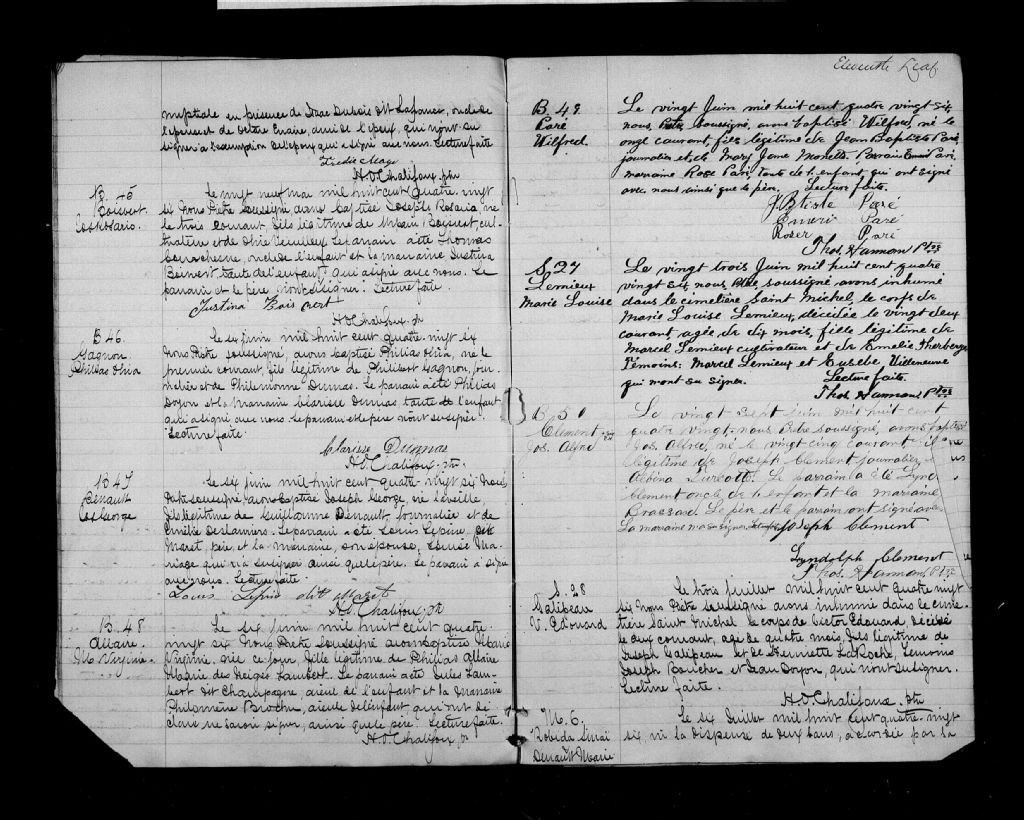 nuptiale en présence de Isaac Dubois dit Lafrance, oncle de
l'épouse et de Octave Enaire, ami de l'époux, qui n'ont su
signer à l'exception de l'époux qui a signé avec nous. Lecture faite
H.O. Chalifoux. ptr
B. 45
Boisvert
Jos Rosario.
Le vingt neuf mai mil huit cent quatre-vingt
six nous Prêtre soussigné, avons baptisé Joseph Rosario, né
le trois courant, fils légitime de Boisvert, cul-
tivateur et de Le parrain a été Thomas
oncle de l'enfant et la marraine Justina
Boisvert, tante de l'enfant, qui a signé avec nous. Le
parrain et le père n'ont su signer. Lecture faite.
Justina Bois vert
H.O. Chalifoux. ptr
B 46.
Gagnon
Philias Ovila
Le six juin mil huit cent quatre-vingt six
Nous Prêtre soussigné, avons baptisé Philias Ovila, né le
premier courant, fils légitime de Philibert Gagnon, jour-
nalier et de Philomène Dumas. Le parrain a été Philias
Doyon et la marraine Clarisse Dumas, tante de l'enfant
qui a signé avec nous. Le parrain et le père n'ont su signer.
Lecture faite.
Clarisse Dumas
H.O. Chalifoux. ptr.
B 47
Denault
Jos George
Le six juin mil huit cent quatre-vingt six Nous
Prêtre soussigné avons baptisé Joseph George, né la veille
fils légitime de Guillaume Denault, journalier et de
Emélie Deslauriers. Le parrain a été Louis Lépine, dit
Maret, père et la marraine, son épouse,
qui n'a su signer ainsi que le père. Le parrain a signé
avec nous. Lecture faite.
Louis Lepin ditt Maret
H.O. Chalifoux. ptr
B. 48
Allaire.
M. Virginie.
Le six juin mil huit cent quatre-
vingt six Nous Prêtre soussigné avons baptisé Marie
Virginie, née ce jour, fille légitime de Philias Allaire
Marie des Neiges Lambert. Le parrain a été Jules Lam-
bert dit Champagne, aïeul de l'enfant et la marraine
Philomène Brochu, aïeule de l'enfant qui ont dé-
claré ne savoir signer, ainsi que le père. Lecture faite.
H.O. Chalifoux, ptr
Eleventh Leaf
B. 49.
Paré
Wilfred.
Le vingt Juin mil huit cent quatre vingt six,
nous, Ptre soussigné, avons baptisé Wilfred, né le
onze courant, fils légitime de Jean Baptiste Paré,
journalier et de Mary Jane Monette. Parrain Emeri Paré,
marraine Rose Paré, tante de l'enfant, qui ont signé
avec nous ainsi que le père. Lecture faite.
J. Btiste Paré
Emeri Paré
Roser Paré
Thos. Harmon Ptre
S. 27
Lemieux
Marie Louise
Le vingt trois Juin mil huit cent quatre
vingt six, nous Ptre soussigné avons inhumé
dans le cimetière Saint Michel, le corps de
Marie Louise Lemieux, décédée le vingt deux
courant, agée de dix mois, fille légitime de
Marcel Lemieux cultivateur et de Emelie Therberge
Témoins: Marcel Lemieux et Eusebe Villeneuve
qui n'ont su signer. Lecture faite.
Thos. Harmon, Ptre
B. 50
Clement
Jos. Alfred
Le vingt Sept juin mil huit cent
quatre vingt- nous Ptre soussigné, avons baptisé
Jos. Alfred, né le vingt cinq courant, fils
légitime de Joseph Clement journalier, et
Albina Turcotte. Le parrain a été Lynd
Clement oncle de l'enfant et la marraine
Brassard. Le père et le parrain ont signé avec
La marraine n'a su signer. Joseph Clement
Lyndolph Clement
Thos. Harmon, Ptre
S. 28
Galipeau
V. Edouard
Le trois juillet mil huit cent quatre vingt
six Nous Prêtre soussigné avons inhumé dans le cime-
tière Saint Michel le corps de Victor Edouard, décédé
le deux courant, agé de quatre mois, fils légitime de
Joseph Galipeau et de Henriette LaRoche, témoins
Joseph Boucher et Jean Doyon, qui n'ont su signer.
Lecture faite.
H.O. Chalifoux, ptr
M. 6.
Robida
Denault Marie
Le six Juillet mil huit cent quatre-vingt
six, vu la dispense de deux bans, accordée par la